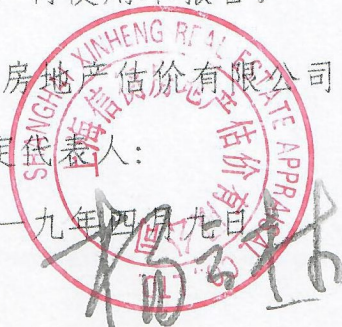 房地产估价有限公司
定代表人：
一九年四月九日
SHANGHAI XINHENG REAL ESTATE APPRAISAL CO.
上海信衡房地产估价有限公司